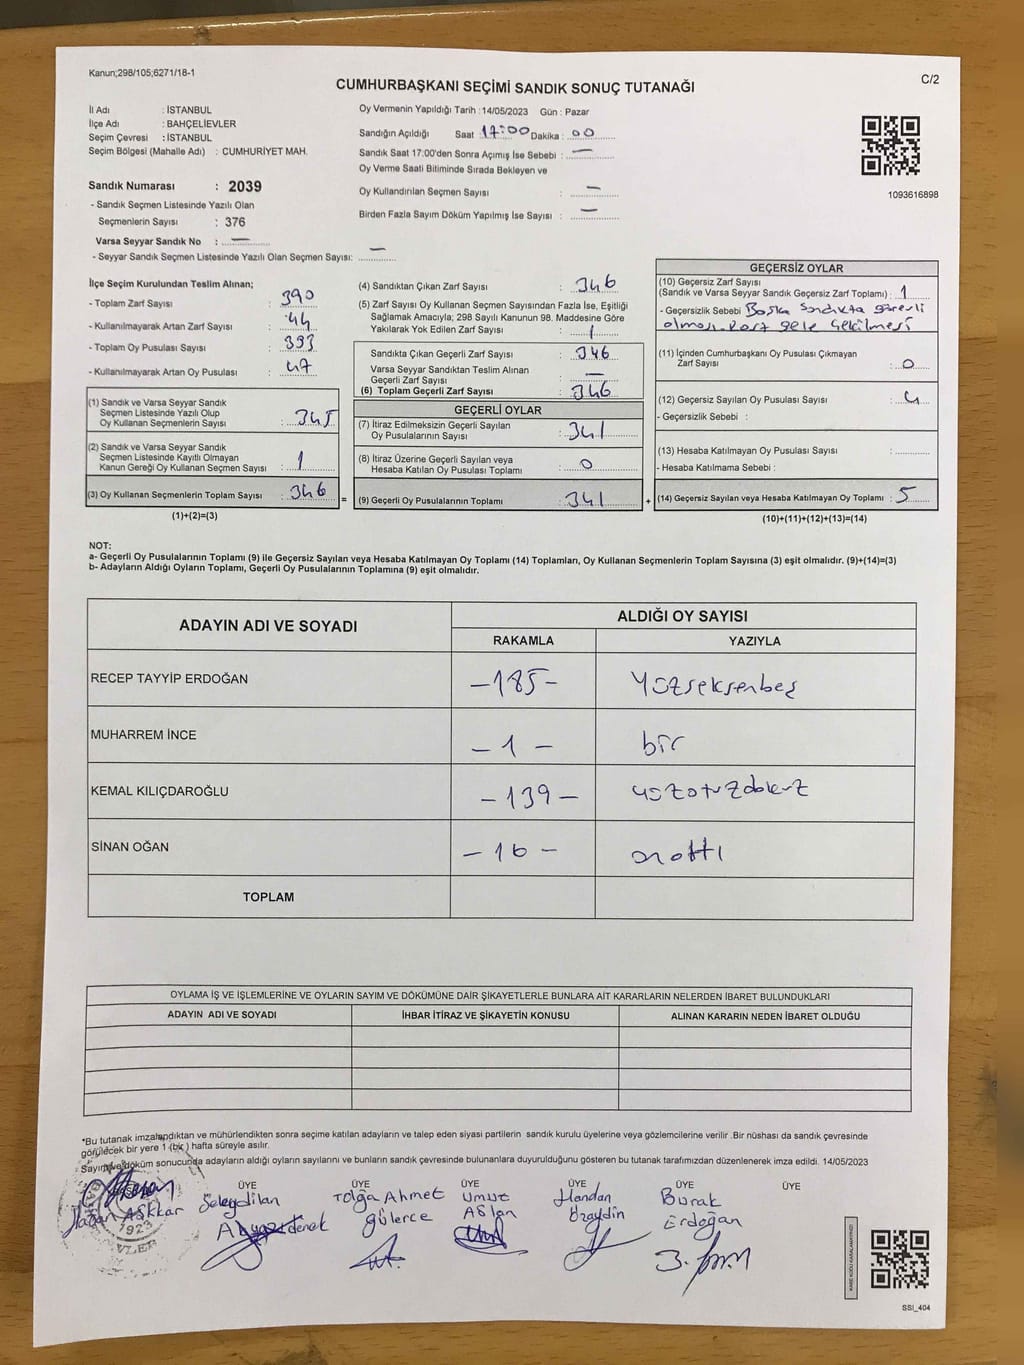 Kanun;298/105;6271/18-1
C/2
CUMHURBAŞKANI SEÇİMİ SANDIK SONUÇ TUTANAĞI
İl Adı : İSTANBUL
İlçe Adı : BAHÇELİEVLER
Seçim Çevresi : İSTANBUL
Seçim Bölgesi (Mahalle Adı) : CUMHURİYET MAH.
Sandık Numarası : 2039
- Sandık Seçmen Listesinde Yazılı Olan
Seçmenlerin Sayısı : 376
Varsa Seyyar Sandık No : —
- Seyyar Sandık Seçmen Listesinde Yazılı Olan Seçmen Sayısı: —
Oy Vermenin Yapıldığı Tarih : 14/05/2023 Gün : Pazar
Sandığın Açıldığı Saat 17:00 Dakika : 00
Sandık Saat 17:00'den Sonra Açımış İse Sebebi : —
Oy Verme Saati Bitiminde Sırada Bekleyen ve
Oy Kullandırılan Seçmen Sayısı : —
Birden Fazla Sayım Döküm Yapılmış İse Sayısı : —
1093616898
İlçe Seçim Kurulundan Teslim Alınan;
- Toplam Zarf Sayısı : 390
- Kullanılmayarak Artan Zarf Sayısı : 44
- Toplam Oy Pusulası Sayısı : 393
- Kullanılmayarak Artan Oy Pusulası : 47
(1) Sandık ve Varsa Seyyar Sandık
Seçmen Listesinde Yazılı Olup
Oy Kullanan Seçmenlerin Sayısı : 345
(2) Sandık ve Varsa Seyyar Sandık
Seçmen Listesinde Kayıtlı Olmayan
Kanun Gereği Oy Kullanan Seçmen Sayısı : 1
(3) Oy Kullanan Seçmenlerin Toplam Sayısı : 346 =
(1)+(2)=(3)
(4) Sandıktan Çıkan Zarf Sayısı : 346
(5) Zarf Sayısı Oy Kullanan Seçmen Sayısından Fazla İse, Eşitliği
Sağlamak Amacıyla; 298 Sayılı Kanunun 98. Maddesine Göre
Yakılarak Yok Edilen Zarf Sayısı : 1
Sandıkta Çıkan Geçerli Zarf Sayısı : 346
Varsa Seyyar Sandıktan Teslim Alınan
Geçerli Zarf Sayısı : —
(6) Toplam Geçerli Zarf Sayısı : 346
GEÇERLİ OYLAR
(7) İtiraz Edilmeksizin Geçerli Sayılan
Oy Pusulalarının Sayısı : 341
(8) İtiraz Üzerine Geçerli Sayılan veya
Hesaba Katılan Oy Pusulası Toplamı : 0
(9) Geçerli Oy Pusulalarının Toplamı : 341 +
GEÇERSİZ OYLAR
(10) Geçersiz Zarf Sayısı
(Sandık ve Varsa Seyyar Sandık Geçersiz Zarf Toplamı) : 1
- Geçersizlik Sebebi Başka Sandıkta görevli
(11) İçinden Cumhurbaşkanı Oy Pusulası Çıkmayan
Zarf Sayısı : 0
(12) Geçersiz Sayılan Oy Pusulası Sayısı : 4
- Geçersizlik Sebebi :
(13) Hesaba Katılmayan Oy Pusulası Sayısı :
- Hesaba Katılmama Sebebi :
(14) Geçersiz Sayılan veya Hesaba Katılmayan Oy Toplamı : 5
(10)+(11)+(12)+(13)=(14)
NOT:
a- Geçerli Oy Pusulalarının Toplamı (9) ile Geçersiz Sayılan veya Hesaba Katılmayan Oy Toplamı (14) Toplamları, Oy Kullanan Seçmenlerin Toplam Sayısına (3) eşit olmalıdır. (9)+(14)=(3)
b- Adayların Aldığı Oyların Toplamı, Geçerli Oy Pusulalarının Toplamına (9) eşit olmalıdır.
ADAYIN ADI VE SOYADI
ALDIĞI OY SAYISI
RAKAMLA YAZIYLA
RECEP TAYYİP ERDOĞAN -185- yüzseksenbeş
MUHARREM İNCE - 1 - bir
KEMAL KILIÇDAROĞLU - 139 - yüzotuzdokuz
SİNAN OĞAN - 16 - onaltı
TOPLAM
OYLAMA İŞ VE İŞLEMLERİNE VE OYLARIN SAYIM VE DÖKÜMÜNE DAİR ŞİKAYETLERLE BUNLARA AİT KARARLARIN NELERDEN İBARET BULUNDUKLARI
ADAYIN ADI VE SOYADI İHBAR İTİRAZ VE ŞİKAYETİN KONUSU ALINAN KARARIN NEDEN İBARET OLDUĞU
*Bu tutanak imzalandıktan ve mühürlendikten sonra seçime katılan adayların ve talep eden siyasi partilerin sandık kurulu üyelerine veya gözlemcilerine verilir .Bir nüshası da sandık çevresinde
görülecek bir yere 1 (bir ) hafta süreyle asılır.
Sayım ve döküm sonucunda adayların aldığı oyların sayılarını ve bunların sandık çevresinde bulunanlara duyurulduğunu gösteren bu tutanak tarafımızdan düzenlenerek imza edildi. 14/05/2023
ÜYE ÜYE ÜYE ÜYE ÜYE ÜYE
Tolga Ahmet Umut Handan Burak
Hasan Aşkkar Gülerce Aslan Özaydin Erdoğan
1923
KARE KODU KARALAMAYINIZ!
SSI_404